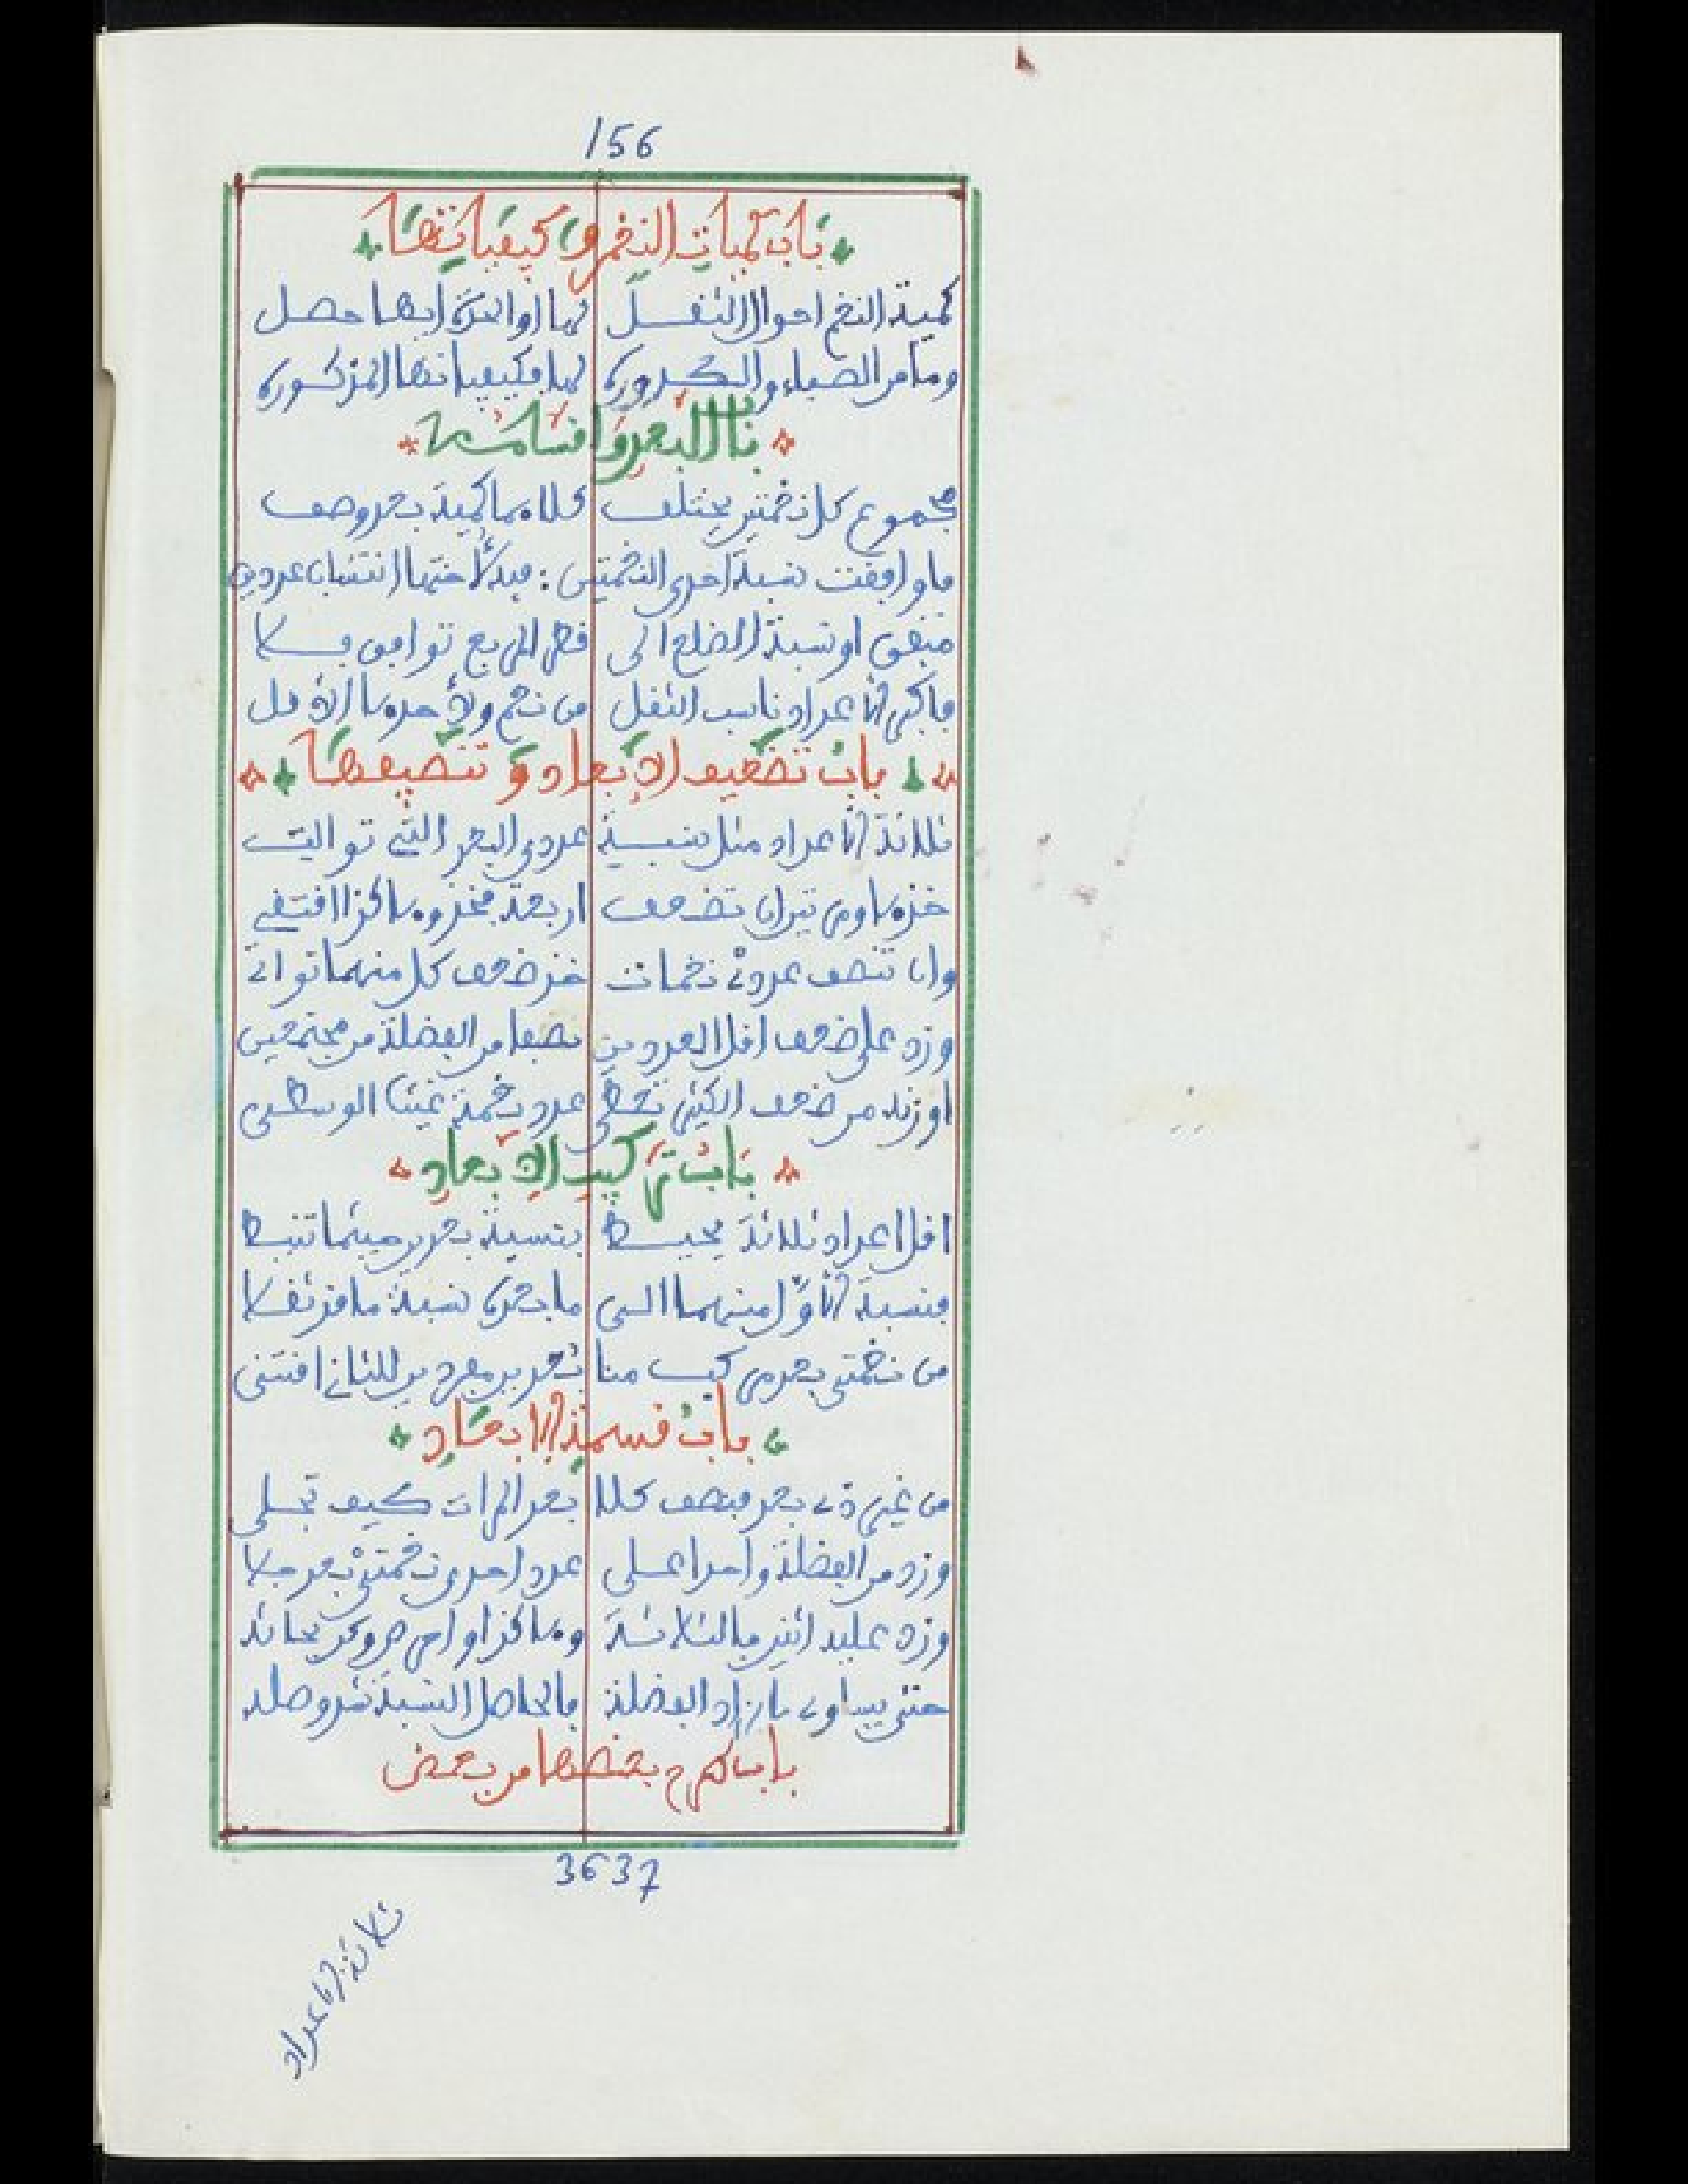 156
باب كميات النغم وكيفياتها
كمية النغم احوال الثقل لها او الحدة ايها حصل
وما من الصفاء والكدورة لها فكيفياتها المذكورة
باب البعد واقسامه
مجموع كل نغمتين يختلف كلاهما كمية بعد وصف
ما وافقت نسبة احدى النغمتين : فيه لأختها انتساب عددين
متفق او نسبة الضلع الى قطر المربع توافق فلا
فأكبر الأعداد ناسب الثقل من نغم ولأحدها الأقل
باب تضعيف الأبعاد وتنصيفها
ثلاثة الأعداد مثل نسبة عددي البعد التي توالت
خذها ومن ترد ان تضعف اربعة فخذ وهاكذا اقتفي
وان تنصف عددي نغمات خذ ضعف كل منهما تواتي
وزد على ضعف اقل العددين نصفا من الفضلة من مجتمعين
او زنه من ضعف الكثير تعطى عدد نغمة عينا الوسطى
باب تركيب الأبعاد
اقل اعداد ثلاثة يحيط بنسبة بعدين حيثما تنبط
فنسبة الأول منهما الى ما بعده نسبة ما قد ثقلا
من نغمتي بعد من كب منا بعدين معدين للثاني اقتنى
باب قسمة الابعاد
من غير ذي بعد فنصف كللا بعد المرات كيف تجلى
وزد من الفضلة واحدا على عدد احدى نغمتي بعد جلا
وزد عليه اثنين بالثلاثة وهاكذا
حتى يساوي ما زاد الفضلة فالحاصل النسبة
باب طرح بعضها من بعض
3637
ثلاثة الأعداد